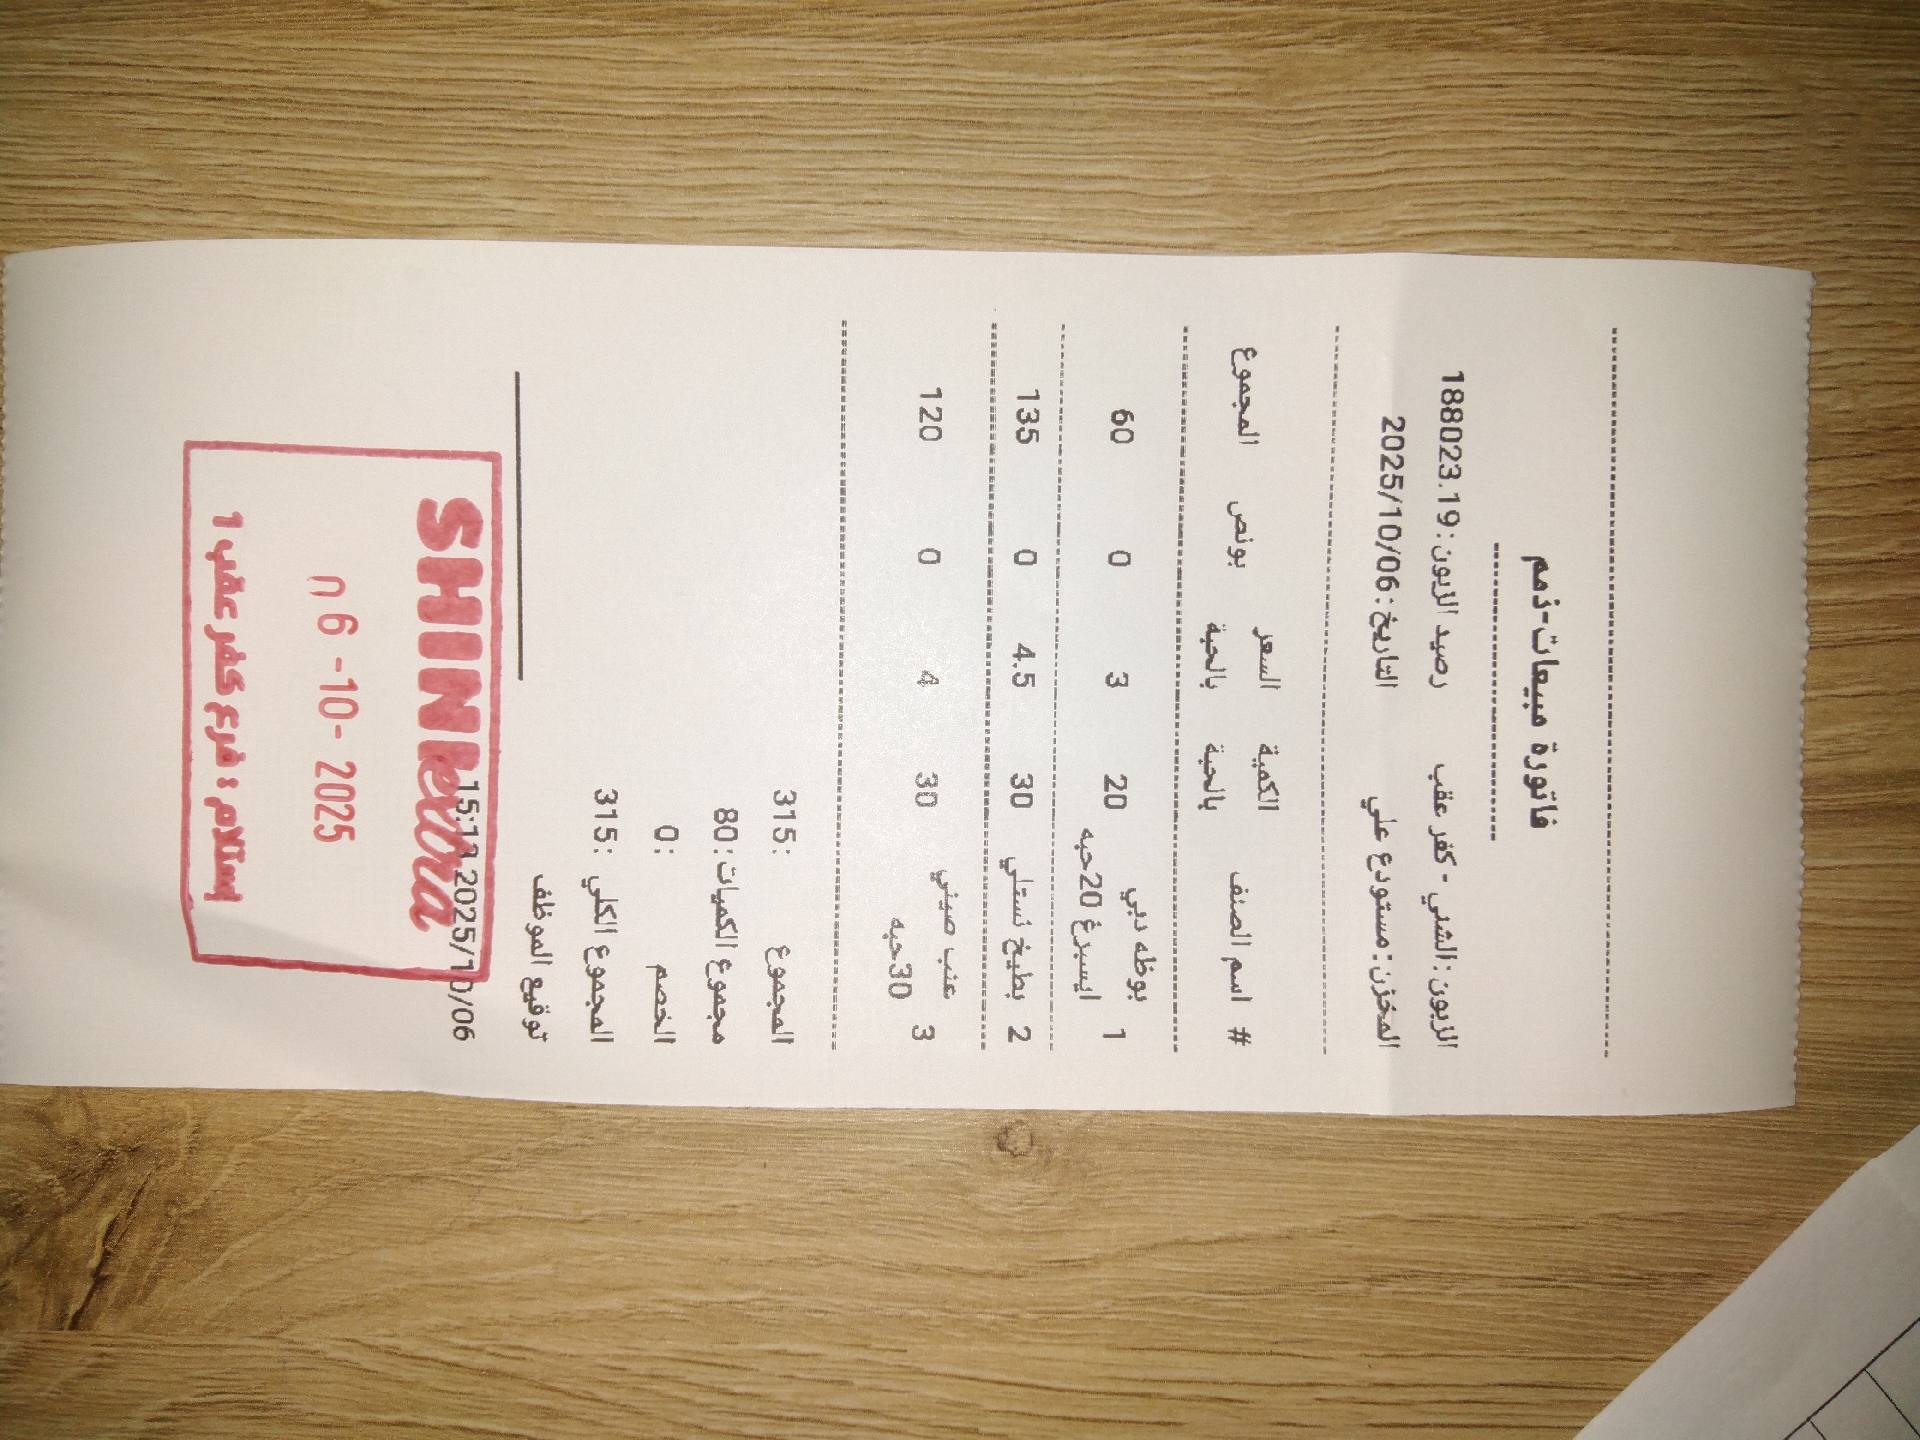 فاتورة مبيعات-ذمم
الزبون: الشني - كفر عقب رصيد الزبون: 188023.19
المخزن: مستودع علي التاريخ: 2025/10/06
# اسم الصنف الكمية بالحبة السعر بالحبة بونص المجموع
1 بوظه دبي 20 3 0 60
ايسبرغ 20حبه
2 بطيخ نستلي 30 4.5 0 135
3 عنب صيني 30 4 0 120
30حبه
المجموع 315:
مجموع الكميات: 80
الخصم 0:
المجموع الكلي 315:
توقيع الموظف
15:13 2025/10/06
SHINI extra
06 -10- 2025
إستلام: فرع كفر عقب 1